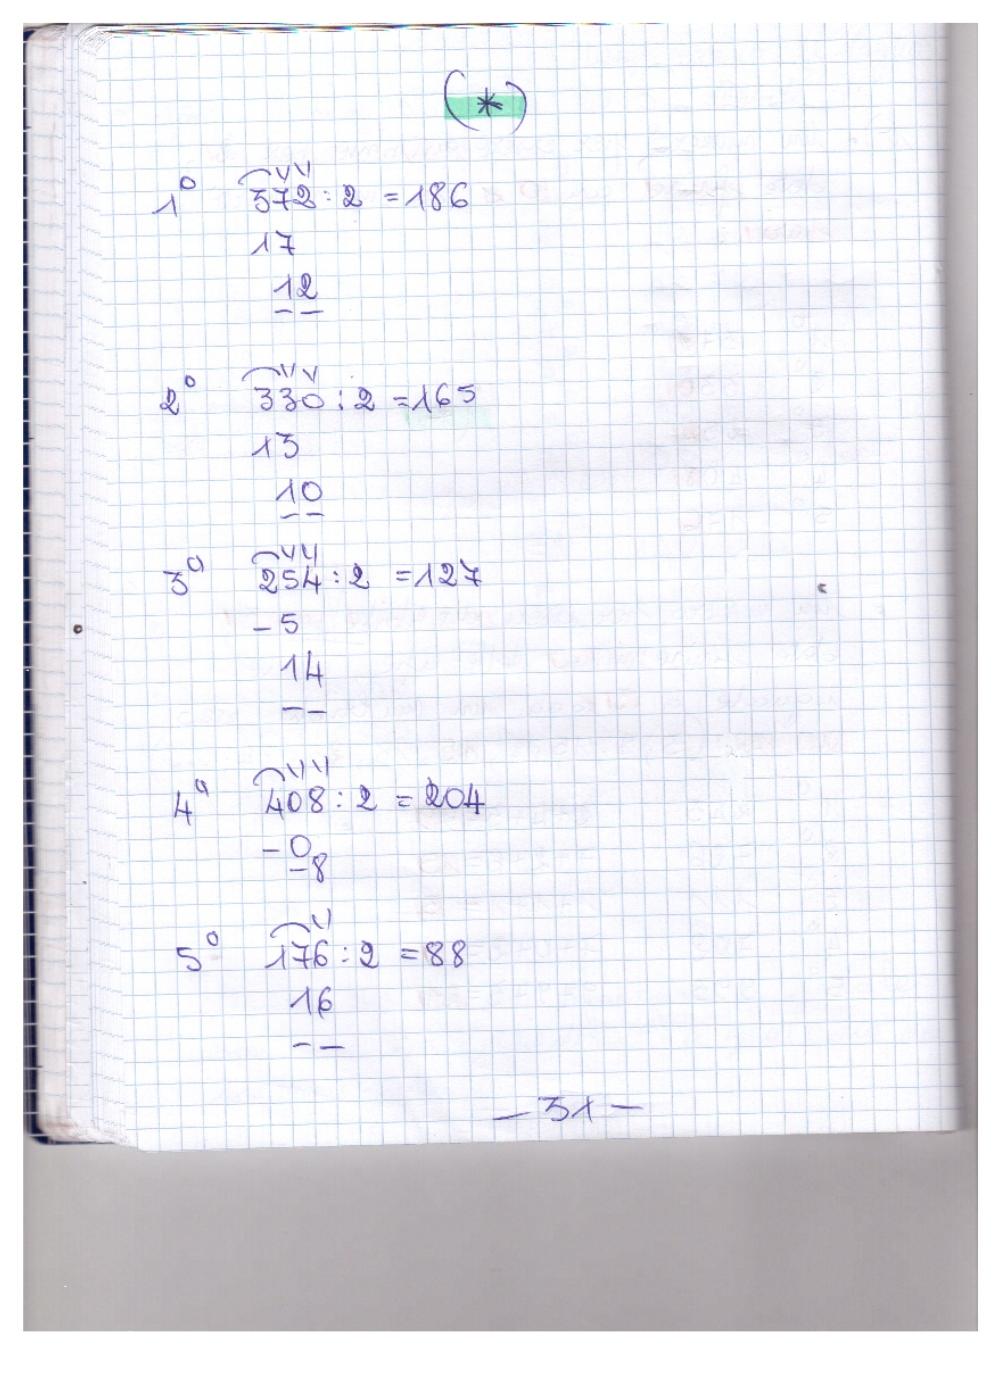 (*)
1° 372 : 2 = 186
17
12
– –
2° 330 : 2 = 165
13
10
– –
3° 254 : 2 = 127
– 5
14
– –
4° 408 : 2 = 204
– 0
– 8
5° 176 : 2 = 88
16
– –
– 31 –